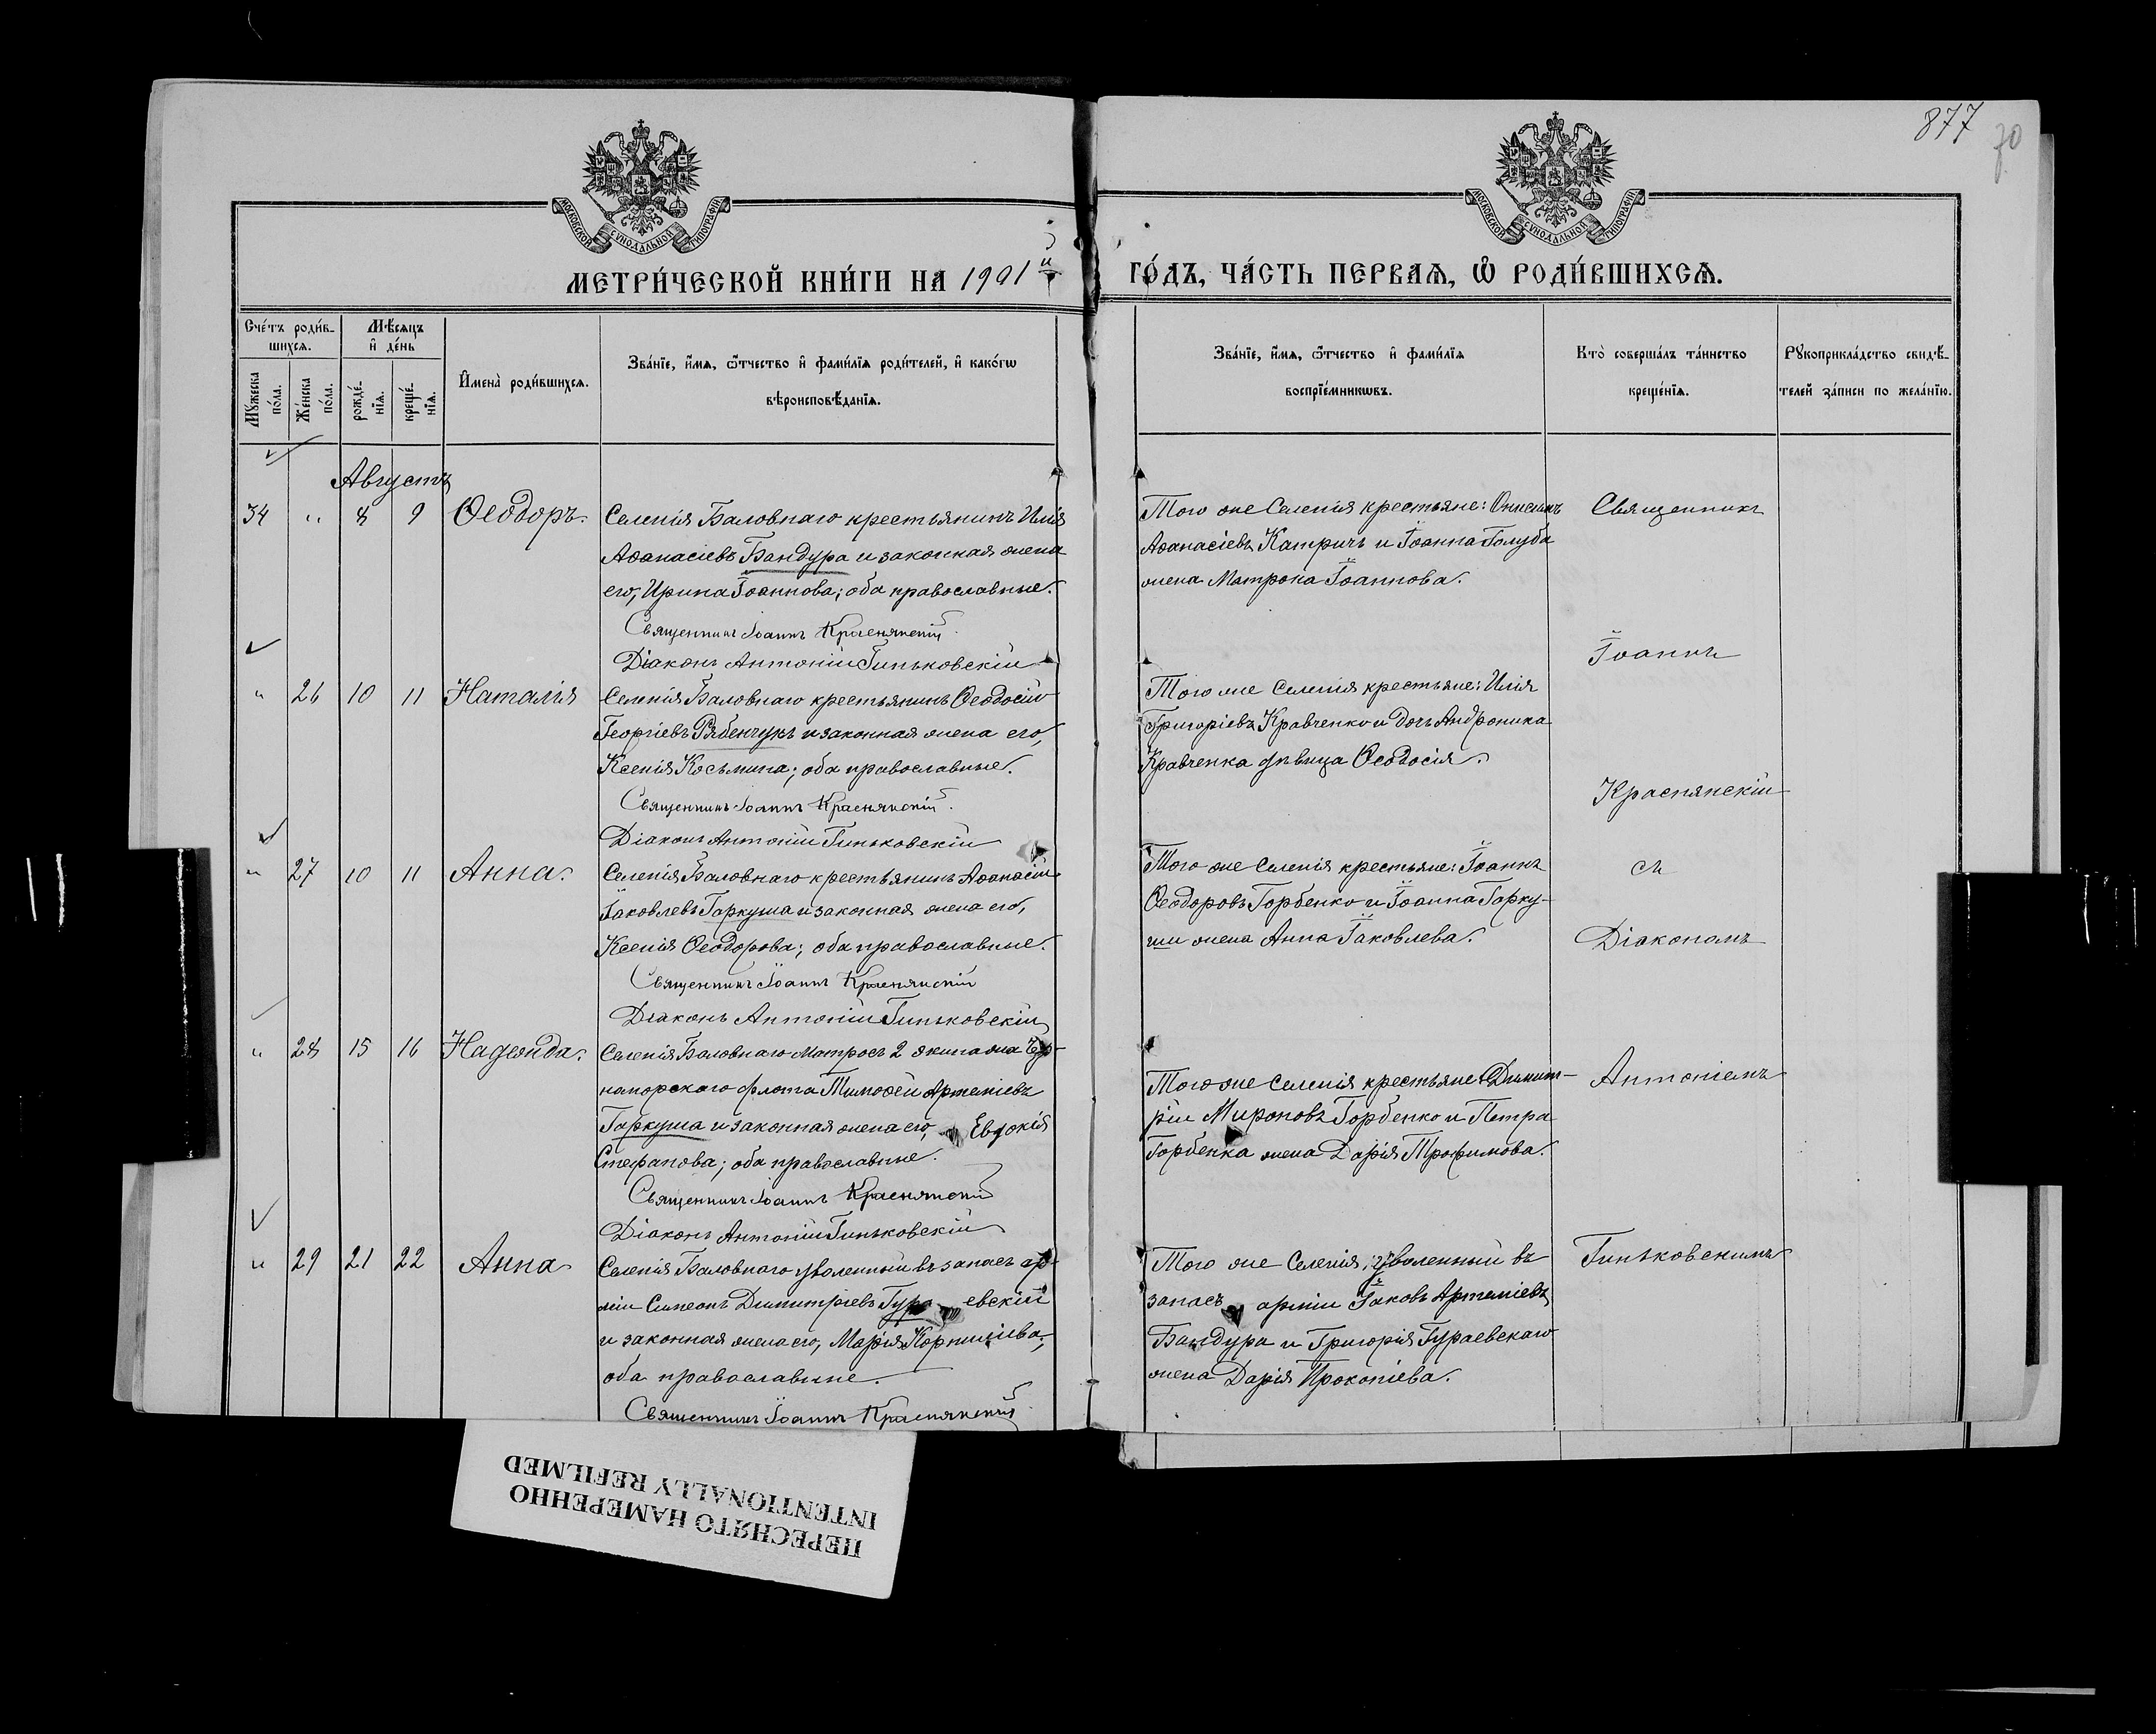 877
70
МОСКОВСКОЙ СУНОДАЛЬНОЙ ТИПОГРАФІИ
МОСКОВСКОЙ СУНОДАЛЬНОЙ ТИПОГРАФІИ
МЕТРИ́ЧЕСКОЙ КНИ́ГИ НА 1901й ГО́ДЪ, ЧА́СТЬ ПЕРВАѦ, Ѿ РОДИ́ВШИХСѦ.
Сче́тъ роди́в-
шихсѧ.
Мꙋжеска по́ла.
Же́нска по́ла.
Мѣ́сѧцъ
и҆ де́нь
рожде́-
нїѧ.
креще́-
нїѧ.
И҆мена̀ роди́вшихсѧ.
Зва́нїе, и҆́мѧ, ѻ҆́тчество и҆ фами́лїѧ роди́телей, и҆ како́гѡ
вѣроисповѣ́данїѧ.
Зва́нїе, и҆́мѧ, ѻ҆́тчество и҆ фами́лїѧ
воспрїе́мникѡвъ.
Кто̀ соверша́лъ та́инство
креще́нїѧ.
Рꙋкоприкла́дство свидѣ́-
телей за́писи по жела́нїю.
Августъ
34 " 8 9 Ѳеодоръ.
Селенія Баловнаго крестьянинъ Илія
Аѳанасіевъ Бандура и законная жена
его, Ирина Іоаннова; оба православные.
Священникъ Іоаннъ Краснянскій
Діаконъ Антоній Гиньковскій
Того же Селенія крестьяне: Онисимъ
Аѳанасіевъ Катричъ и Іоанна Голуба
жена Матрона Іоаннова.
" 26 10 11 Наталія
Селенія Баловнаго крестьянинъ Ѳеодосій
Георгіевъ Рябенчукъ и законная жена его,
Ксенія Косьмина; оба православные.
Священникъ Іоаннъ Краснянскій
Діаконъ Антоній Гиньковскій
Того же Селенія крестьяне: Илія
Григоріевъ Кравченко и дочь Андроника
Кравченка дѣвица Ѳеодосія.
" 27 10 11 Анна.
Селенія Баловнаго крестьянинъ Аѳанасій
Іаковлевъ Гаркуша и законная жена его,
Ксенія Ѳеодорова; оба православные.
Священникъ Іоаннъ Краснянскій
Діаконъ Антоній Гиньковскій
Того же Селенія крестьяне: Іоаннъ
Ѳеодоровъ Горбенко и Іоанна Гарку-
ши жена Анна Іаковлева.
" 28 15 16 Надежда.
Селенія Баловнаго Матросъ 2 экипажа Чер-
наморскаго флота Тимоѳей Артеміевъ
Гаркуша и законная жена его, Евдокія
Стефанова; оба православные.
Священникъ Іоаннъ Краснянскій
Діаконъ Антоній Гиньковскій
Того же Селенія крестьяне: Димит-
рій Мироновъ Горбенко и Петра
Горбенка жена Дарія Трофимова.
" 29 21 22 Анна
Селенія Баловнаго уволенный въ запасъ ар-
міи Симеонъ Димитріевъ Гура евскій
и законная жена его, Марія Корниліева;
оба православные.
Священникъ Іоаннъ Краснянскій
Того же Селенія: уволенный въ
запасъ арміи Іаковъ Артеміевъ
Бандура и Григорія Гураевскаго
жена Дарія Прокопіева.
Священникъ
Іоаннъ
Краснянскій
съ
Діакономъ
Антоніемъ
Гиньковскимъ
ПЕРЕСНЯТО НАМЕРЕННО
INTENTIONALLY REFILMED